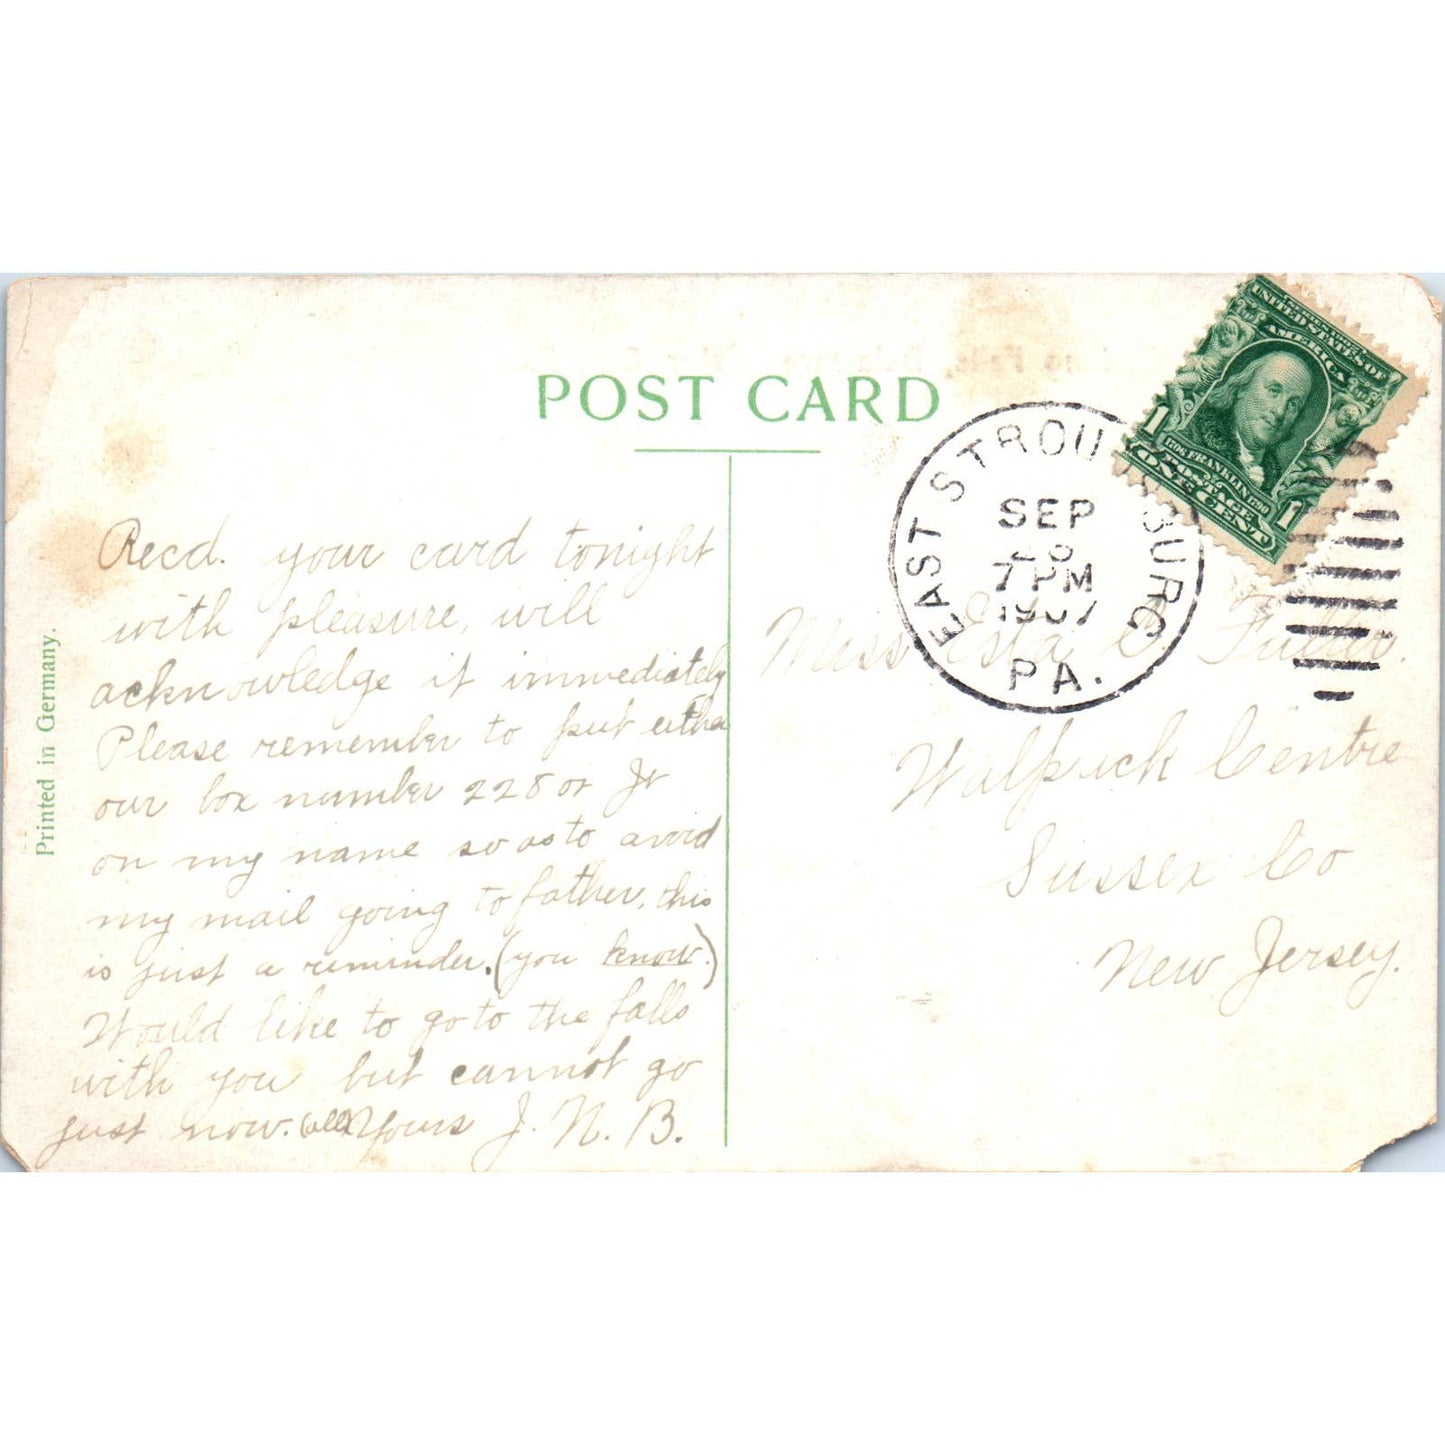 POST CARD
Printed in Germany.
Recd. your card tonight
with pleasure, will
acknowledge it immediately
Please remember to put either
our box number 228 or Jr
on my name so as to avoid
my mail going to father, this
is just a reminder. (you know.)
Would like to go to the falls
with you but cannot go
just now. Yours J. N. B.
EAST STROUDSBURG
SEP
28
7 PM
1907
PA.
UNITED STATES OF
AMERICA
1706 FRANKLIN 1790
POSTAGE
1 ONE CENT 1
Miss Esta C. Fuller.
Walpack Centre
Sussex Co
New Jersey.